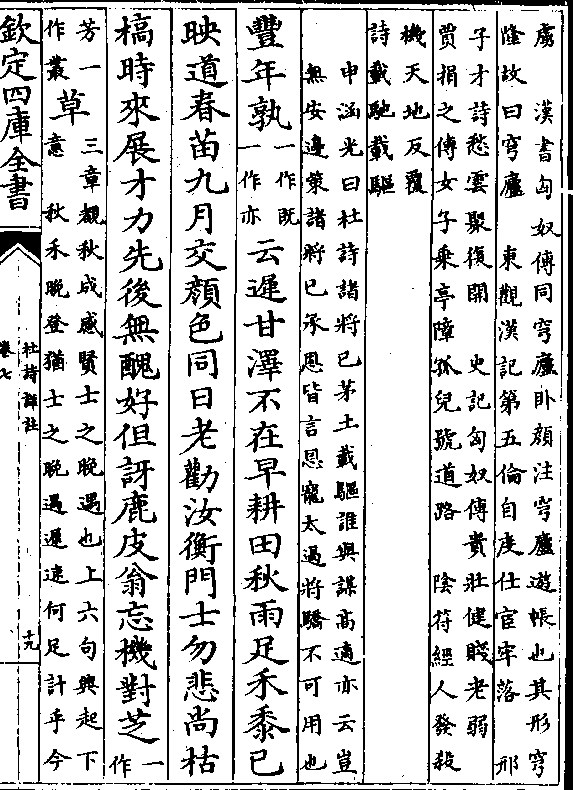 虜　漢書匈奴傳同穹廬卧顔注穹廬遊帳也其形穹
隆故曰穹廬　東觀漢記第五倫自度仕宦牢落　邢
子才詩愁雲聚復開　史記匈奴傳貴壯健賤老弱
賈捐之傳女子乘亭障孤兒號道路　陰符經人發殺
機天地反覆
詩載馳載驅
申涵光曰杜詩諸將已茅土載驅誰與謀高適亦云豈
無安邊策諸將已承恩皆言恩寵太過將驕不可用也
豐年孰一作既一作亦云遲甘澤不在早耕田秋雨足禾黍已
映道春苗九月交顔色同日老勸汝衡門士勿悲尚枯
槁時來展才力先後無醜好但訝鹿皮翁忘機對芝一作
芳一作叢草　三章覩秋成感賢士之晚遇也上六句興起下
意　秋禾晚登猶士之晚遇遲速何足計乎今
欽定四庫全書
杜詩詳註
卷七
十九